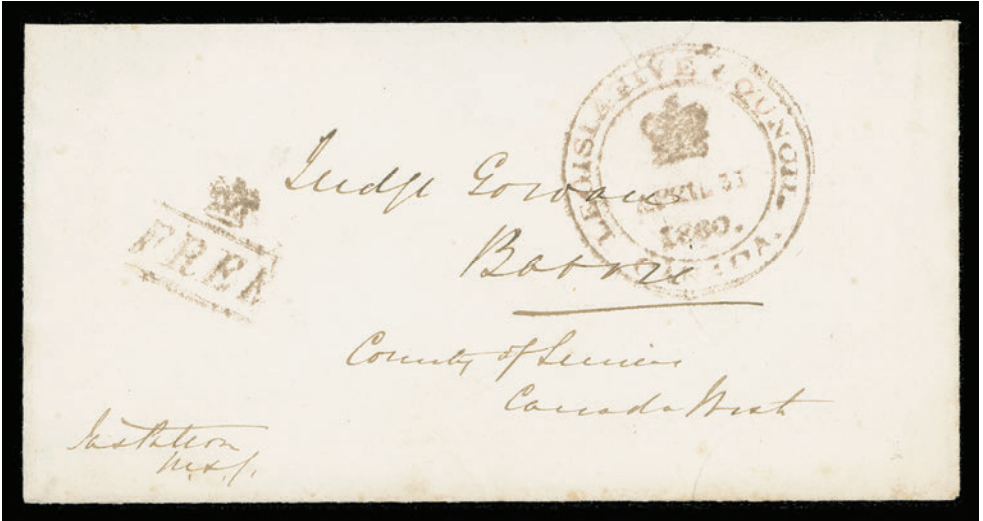 LEGISLATIVE COUNCIL
CANADA
APRIL
1860.
FREE
Judge Gowan
Barrie
County of Simcoe
Canada West
Jas Patton